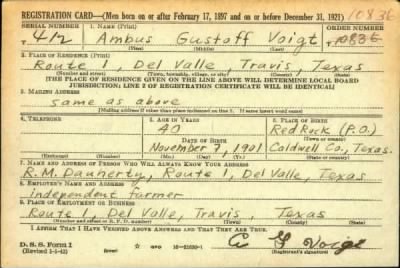 REGISTRATION CARD—(Men born on or after February 17, 1897 and on or before December 31, 1921) 10836
SERIAL NUMBER 1. NAME (Print) ORDER NUMBER
T 412 Ambus Gustoff Voigt 10836
(First) (Middle) (Last)
2. PLACE OF RESIDENCE (Print)
Route 1, Del Valle Travis, Texas
(Number and street) (Town, township, village, or city) (County) (State)
[THE PLACE OF RESIDENCE GIVEN ON THE LINE ABOVE WILL DETERMINE LOCAL BOARD
JURISDICTION; LINE 2 OF REGISTRATION CERTIFICATE WILL BE IDENTICAL]
3. MAILING ADDRESS
same as above
[Mailing address if other than place indicated on line 2. If same insert word same]
4. TELEPHONE 5. AGE IN YEARS 6. PLACE OF BIRTH
40 Red Rock (P.O.)
DATE OF BIRTH (Town or county)
November 7, 1901 Caldwell Co., Texas.
(Exchange) (Number) (Mo.) (Day) (Yr.) (State or country)
7. NAME AND ADDRESS OF PERSON WHO WILL ALWAYS KNOW YOUR ADDRESS
R. M. Daugherty, Route 1, Del Valle, Texas
8. EMPLOYER'S NAME AND ADDRESS
independent farmer
9. PLACE OF EMPLOYMENT OR BUSINESS
Route 1, Del Valle, Travis, Texas
(Number and street or R. F. D. number) (Town) (County) (State)
I AFFIRM THAT I HAVE VERIFIED ABOVE ANSWERS AND THAT THEY ARE TRUE.
D. S. S. Form 1
(Revised) (over) 16—21630-1 A G Voigt
(Registrant's signature)